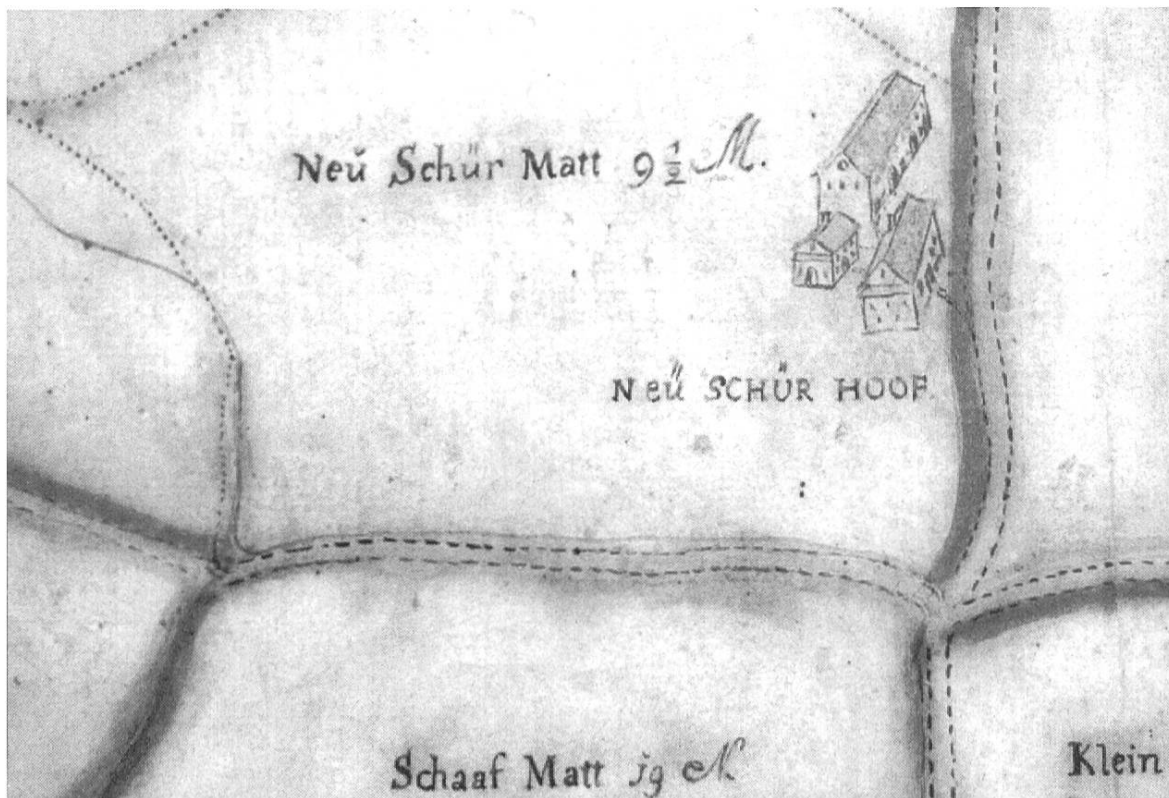 Neü Schür Matt 9 ½ M.
Neü SCHÜR HOOF
Schaaf Matt jg M
Klein